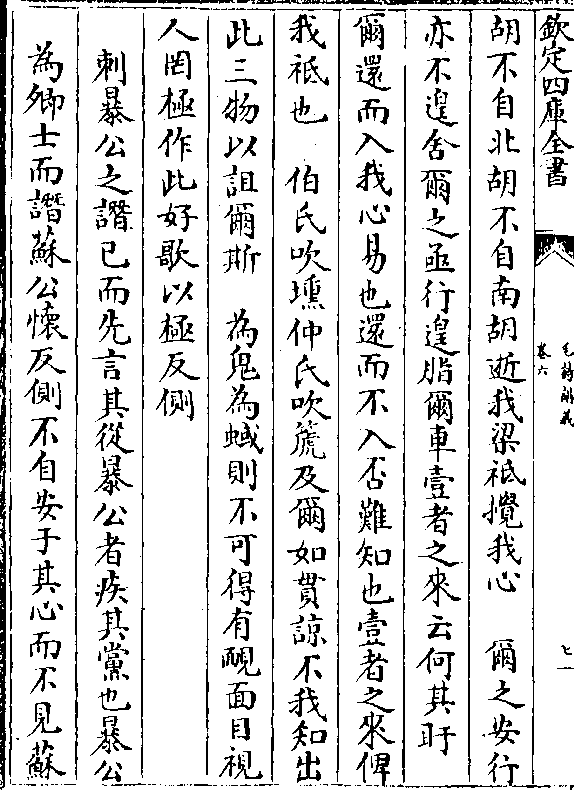 欽定四庫全書
毛詩講義
卷六
胡不自北胡不自南胡逝我梁祗攪我心　爾之安行
亦不遑舍爾之亟行遑脂爾車壹者之來云何其盱
爾還而入我心易也還而不入否難知也壹者之來俾
我祗也　伯氏吹壎仲氏吹篪及爾如貫諒不我知出
此三物以詛爾斯　為鬼為蜮則不可得有靦面目視
人罔極作此好歌以極反側
刺暴公之譖已而先言其從暴公者疾其黨也暴公
為卿士而譖蘇公懷反側不自安于其心而不見蘇